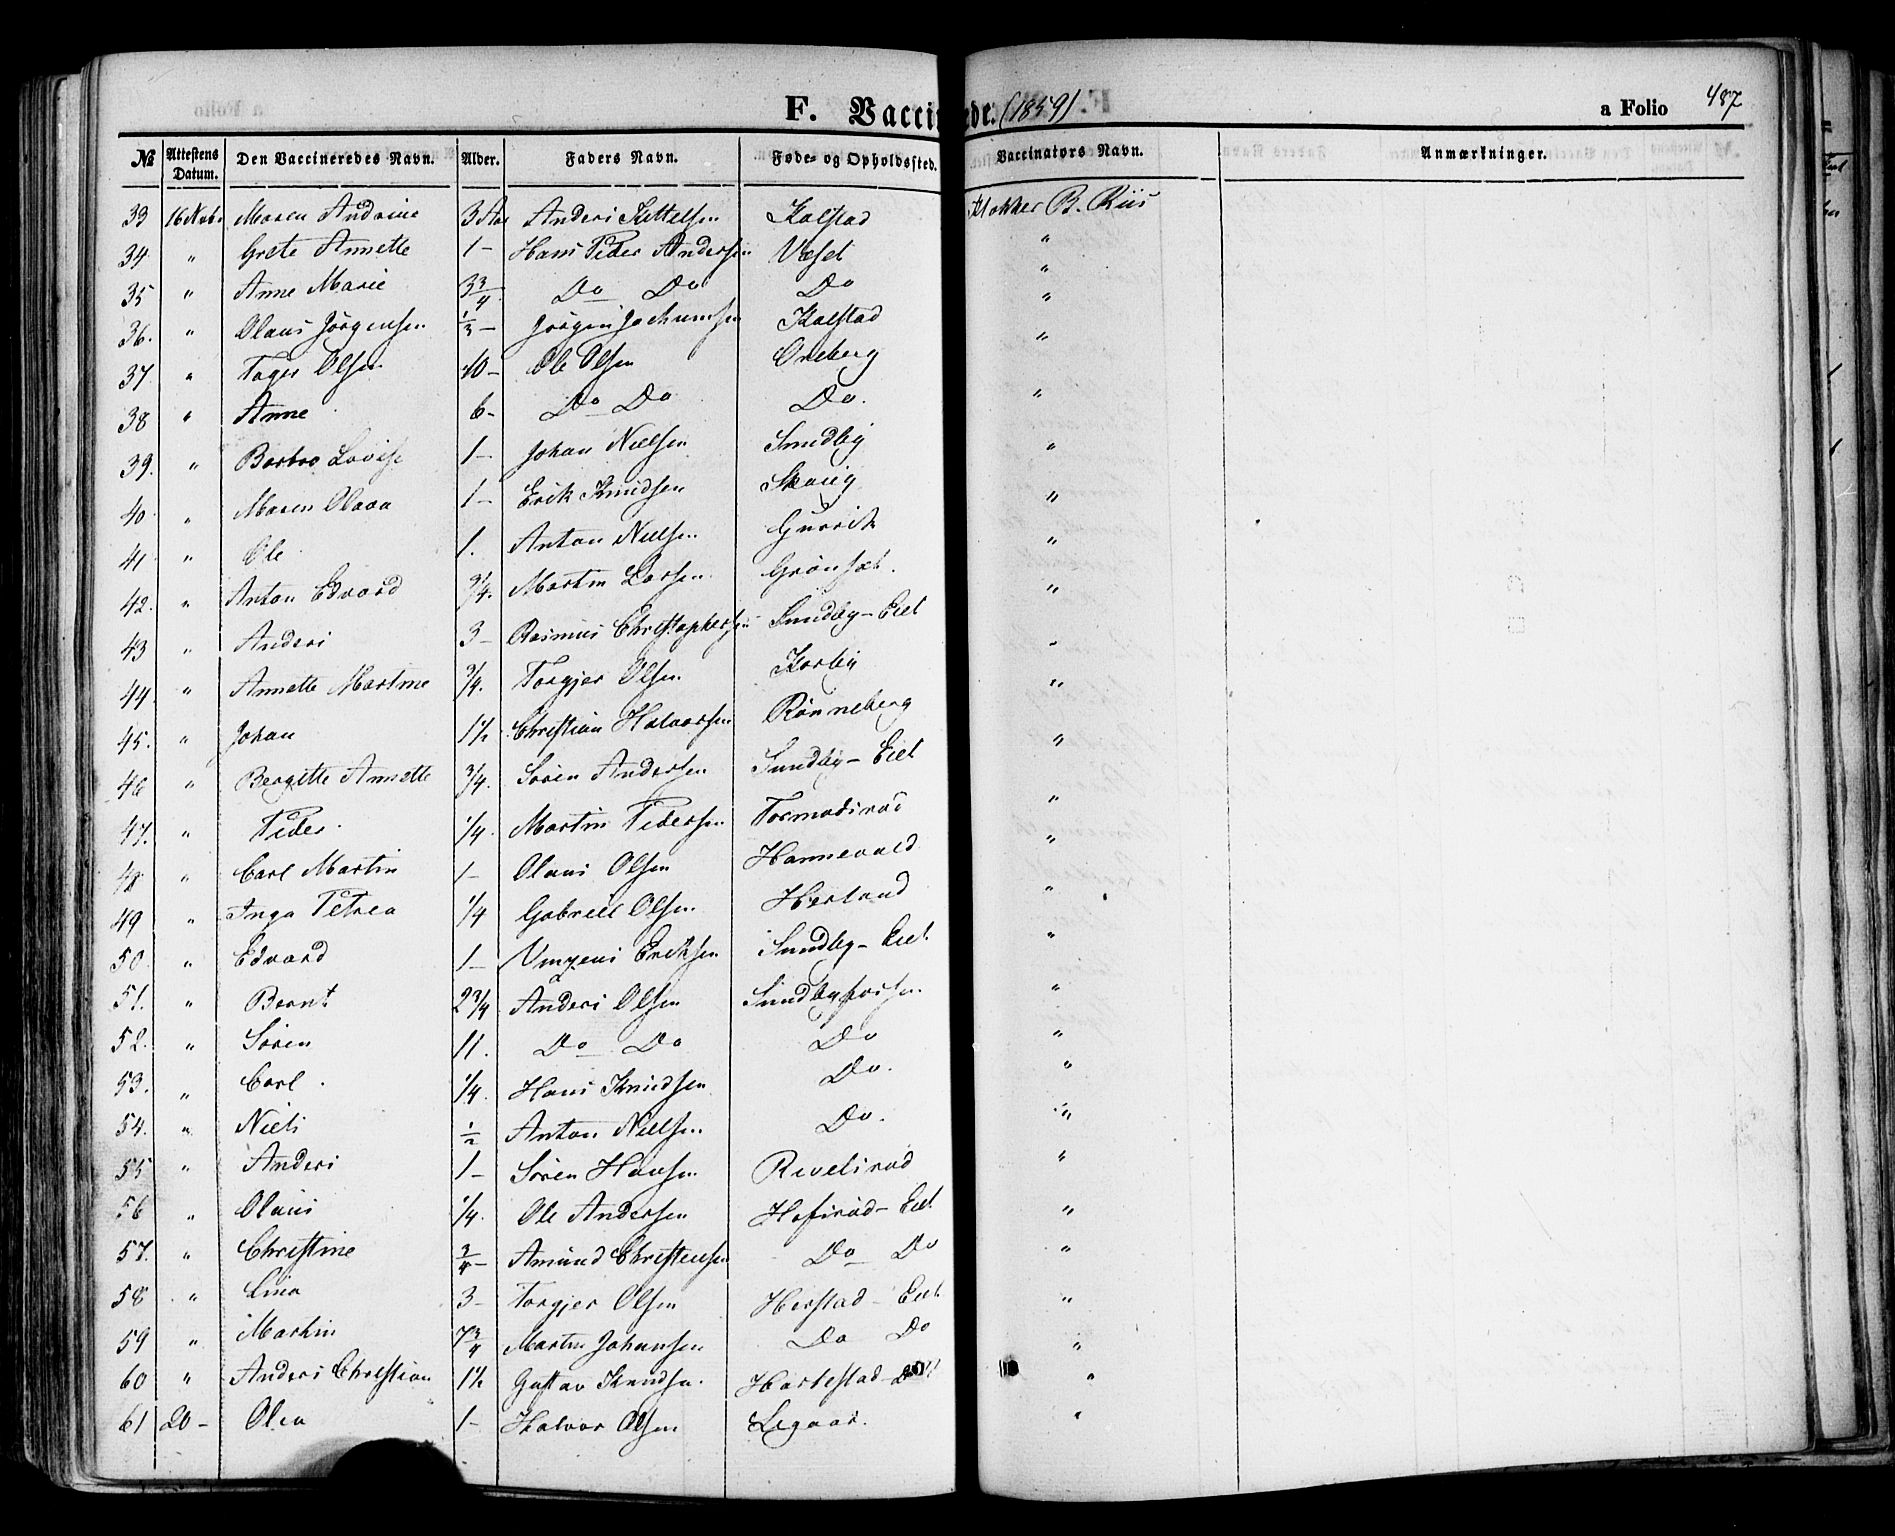 F. Vaccinerede. (1859) a Folio 487
№ Attestens Datum. Den Vaccineredes Navn. Alder. Faders Navn. Føde- og Opholdssted. Vaccinators Navn. Anmærkninger.
33 16 Novbr Maren Andrine 3 Aar Anders Kittelsen Kalstad Klokker B. Riis
34 " Grete Annette 1 – Hans Peder Andersen Væset "
35 " Anne Marie 3 3/4 Do Do Do "
36. " Olaus Jørgensen 1/3 – Jørgen Jochumsen Kalstad "
37 " Olsen 10 – Ole Olsen Oreberg "
38 " Anne 6 – Do Do Do. "
39. " Barbro Lovise 1 – Johan Nielsen Sundby "
40 " Maren Olava 1 – Erik Knudsen "
41 " Ole 1. Anton Nielsen "
42. " Anton Edvard 3/4. Martin Larsen. Grønsæt. "
43 " Anders 3 – Rasmus Christophersen Sundby – Eiet "
44 " Annette Martine 3/4. Torgjer Olsen Karby "
45. " Johan 1 1/2 Christian Halvorsen Rønneberg "
46 " Bergitte Annette 3/4. Søren Andersen Sundby – Eiet "
47. " Peder. 1/4. Martin Pedersen Tormodsrød "
48 " Carl Martin 1 – Olaus Olsen Hannevold "
49 " Inga Petrea 1/4 Gabriel Olsen Herland "
50 " Edvard 1 – Eriksen Sundby – Eiet "
51. " Bernt 2 3/4 Anders Olsen Sundbyfossen "
52. " Søren 11. Do Do Do "
53. " Carl. 1/4. Hans Knudsen Do. "
54. " Niels 1/2 Anton Nielsen Do. "
55 " Anders 1 – Søren Hansen Revelsrød "
56 " Olaus 1/4. Ole Andersen Hafsrød – Eiet "
57. " Christine 3/4 – Amund Christensen Do Do "
58 " Lina 3 – Torgjer Olsen Herstad – Eiet "
59 " Martin 7 3/4 Martin Johansen Do Do "
60 " Anders Christian 1 1/2 Gustav Knudsen. "
61 20 – Olea 1 – Halvor Olsen Legaar. "